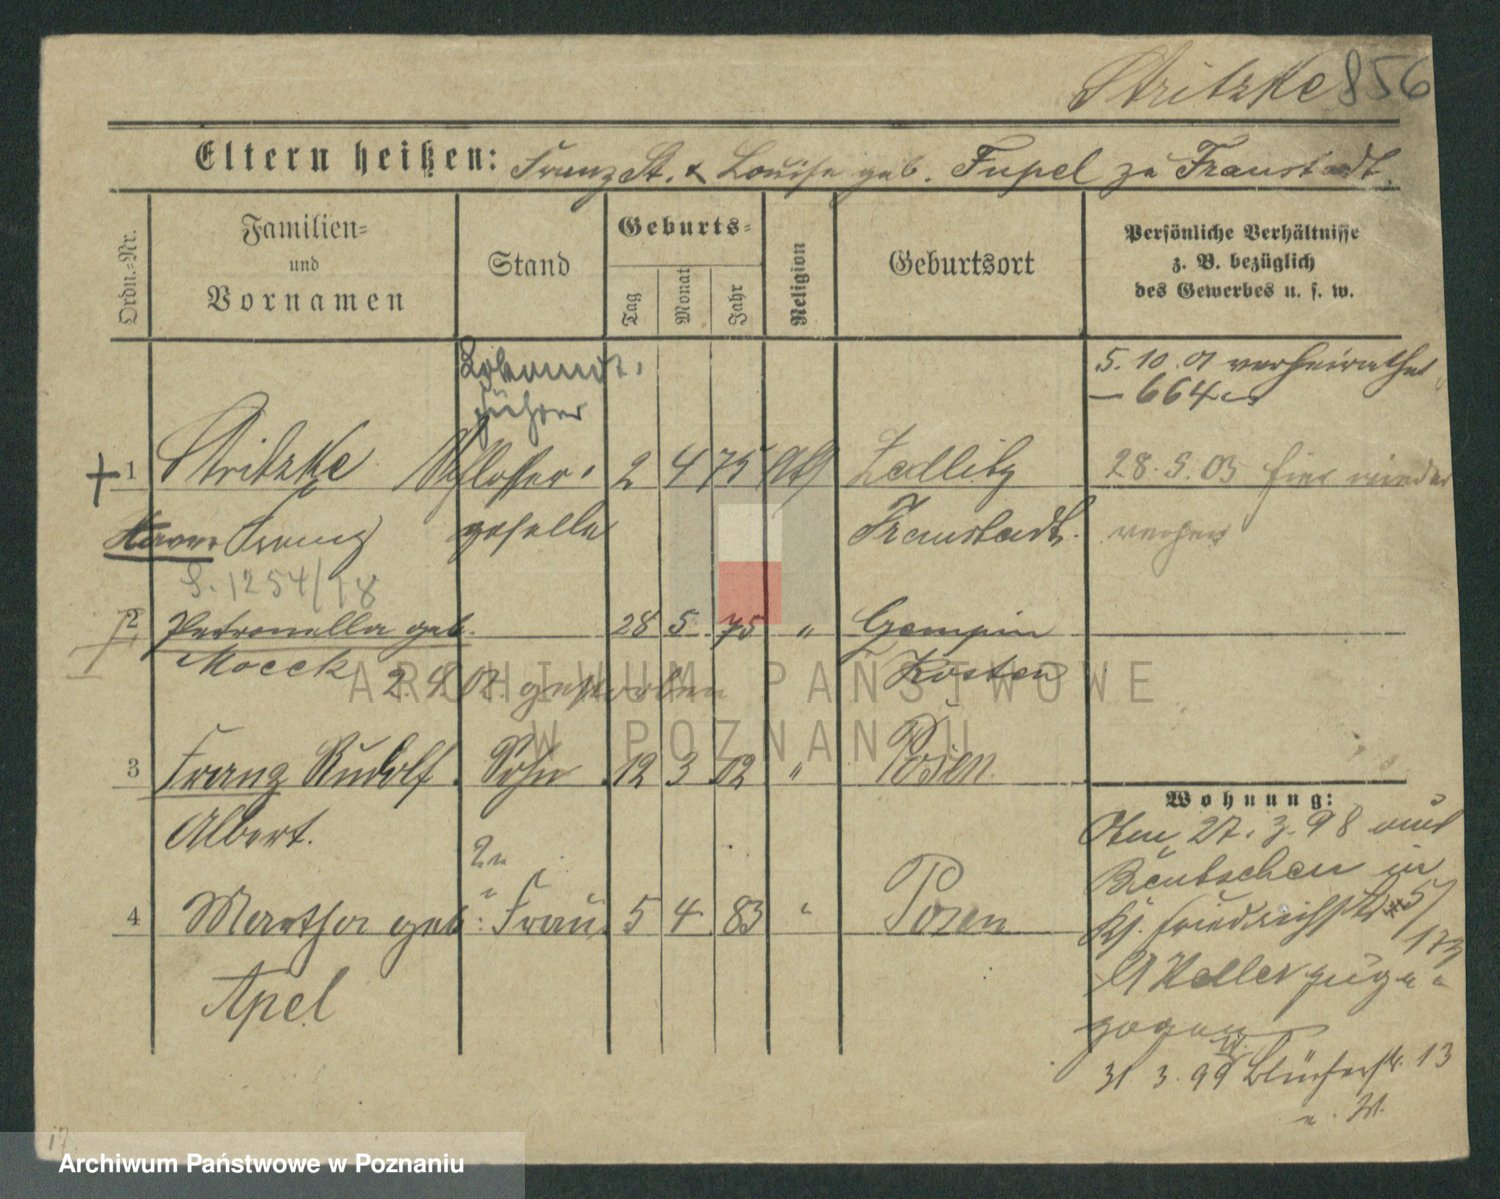 Stritzke 856
Eltern heißen: Franz St. & Louise geb. Fupel zu Fraustadt.
Ordn.-Nr.
Familien-
und
Vornamen
Stand
Geburts-
Tag
Monat
Jahr
Religion
Geburtsort
Persönliche Verhältnisse
z. B. bezüglich
des Gewerbes u. s. w.
führer
5. 10. 01 verheirathet
664
1 Stritzke Schlosser- 2 4 75 Zedlitz 28. 5. 03 hier wieder
Franz geselle Fraustadt.
S. 1254/18
2 Petronella geb. 28 5 75 " Gempin
Mocek 2. 4. 02. gestorben Kosten
3 Franz Rudolf Sohn 12 3 02 " Posen
Albert.
Wohnung:
27. 3. 98 aus
Bentschen in
2n
4 Martha geb. Frau 5 4 83 " Posen
Friedrichstr 5/
173
Apel
b/ Keller zuge-
zogen
31 3. 99 Blücherstr. 13
ARCHIWUM PAŃSTWOWE
W POZNANIU
17
Archiwum Państwowe w Poznaniu